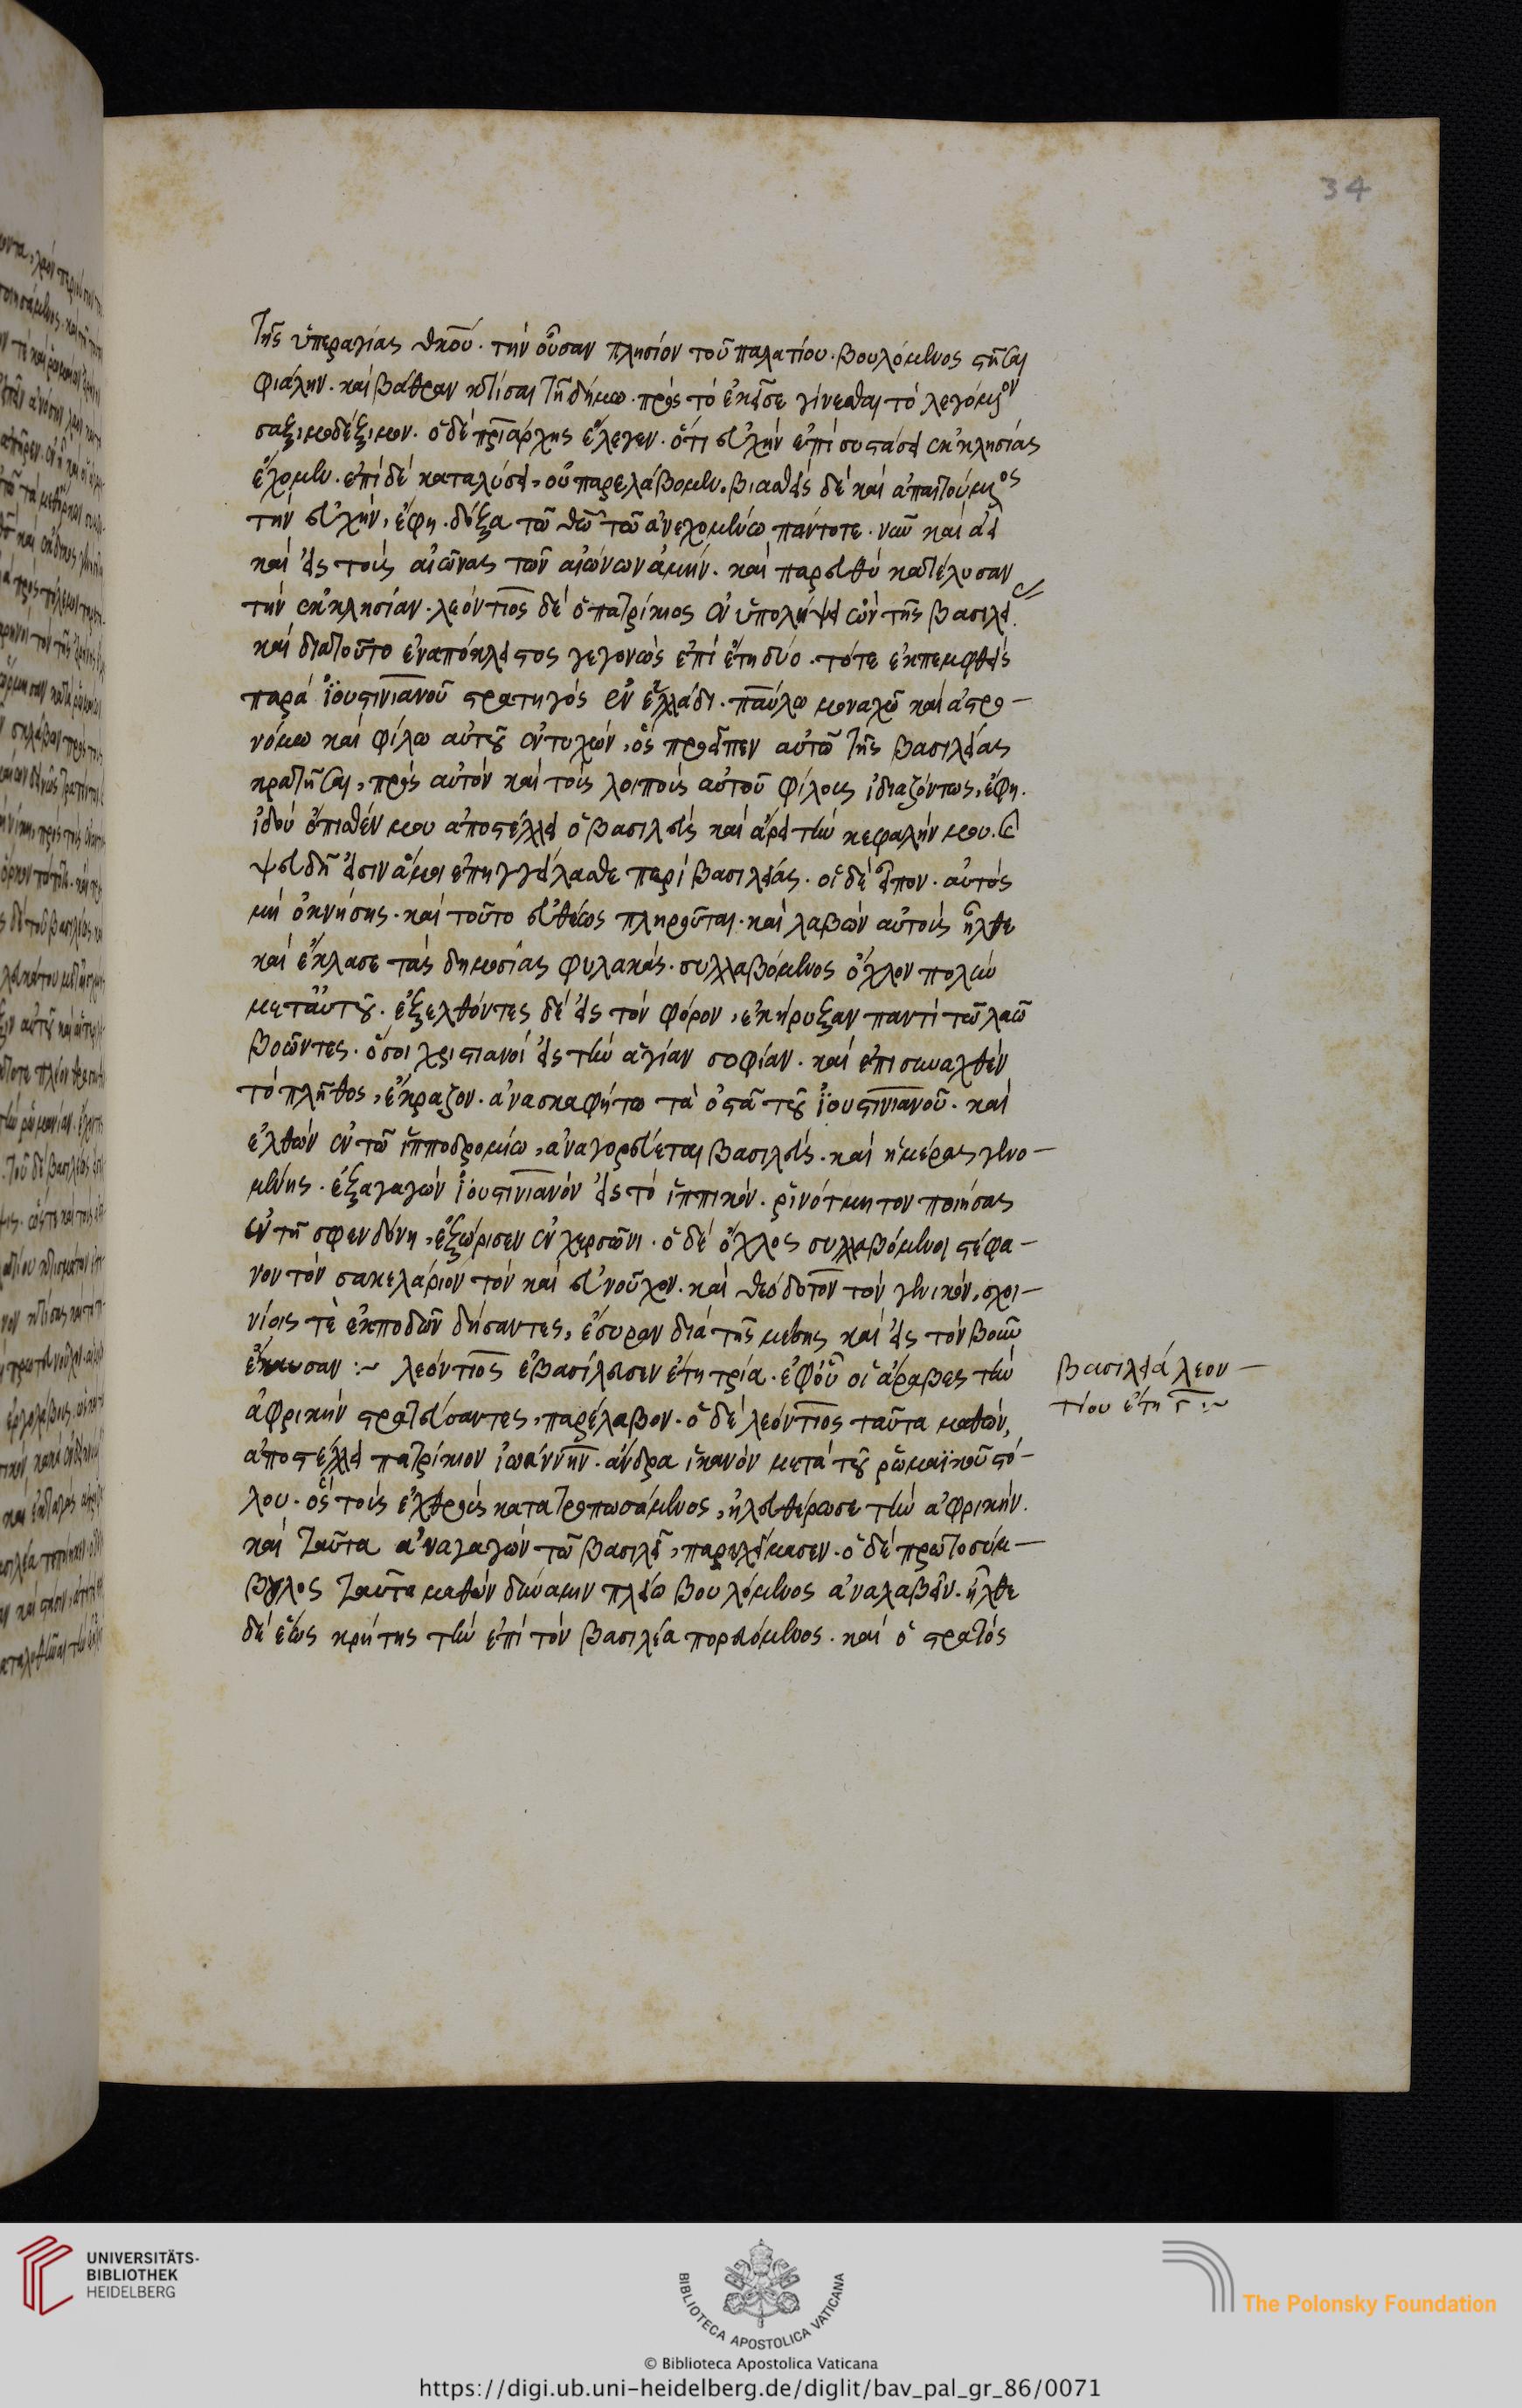 34
τῆς ὑπεραγίας θκου. τὴν οὖσαν πλησίον τοῦ παλατίου. βουλόμενος στῆσαι
φιάλην. καὶ βάθραν κτίσαι τῆ δήμω. πρὸς τὸ ἐκεῖσε γίνεσθαι τὸ λεγόμενον
σαξιμοδέξιμον. ὁ δὲ πριάρχης ἔλεγεν. ὅτι εὐχὴν ἐπὶ συστάσει ἐκκλησίας
ἔχομεν. ἐπὶ δὲ καταλύσει, οὐ παρελάβομεν. βιασθεὶς δὲ καὶ ἀπαιτούμενος
τὴν εὐχὴν, ἔφη. δόξα τῶ θῶ τῶ ἀνεχομένω πάντοτε. νῦν καὶ ἀεὶ
καὶ εἰς τοὺς αἰῶνας τῶν αἰώνων ἀμήν. καὶ παρευθὺ κατέλυσαν
τὴν ἐκκλησίαν. λεόντιος δὲ ὁ πατρίκιος ἐν ὑπολήψει ὢν τῆς βασιλεί
καὶ διατοῦτο ἐναπόκλειστος γεγονὼς ἐπὶ ἔτη δύο. τότε ἐκπεμφθεὶς
παρὰ ἰουστινιανοῦ στρατηγὸς ἐν ἑλλάδι. παύλω μοναχῶ καὶ ἀστρο-
νόμω καὶ φίλω αὐτοῦ ἐντυχὼν, ὃς προεῖπεν αὐτῶ τῆς βασιλείας
κρατῆσαι, πρὸς αὐτὸν καὶ τοὺς λοιποὺς αὐτοῦ φίλους ἰδιαζόντως, ἔφη.
ἰδοὺ ὄπιθέν μου ἀποστέλλει ὁ βασιλεὺς καὶ αἴρει τὴν κεφαλήν μου. καὶ
ψευδῆ εἰσιν ἅμοι ἐπηγγείλασθε περὶ βασιλείας. οἱ δὲ εἶπον. αὐτὸς
μὴ ὀκνήσης. καὶ τοῦτο εὐθέως πληροῦται. καὶ λαβὼν αὐτοὺς ἦλθε
καὶ ἔκλασε τὰς δημοσίας φυλακάς. συλλαβόμενος ὄχλον πολὺν
μεταὐτοῦ. ἐξελθόντες δὲ εἰς τὸν φόρον, ἐκήρυξαν παντὶ τῶ λαῶ
βοῶντες. ὅσοι χριστιανοὶ εἰς τὴν ἁγίαν σοφίαν. καὶ ἐπισυναχθὲν
τὸ πλῆθος, ἔκραζον. ἀνασκαφήτω τὰ ὀστᾶ τοῦ ἰουστινιανοῦ. καὶ
ἐλθὼν ἐν τῶ ἱπποδρομίω, ἀναγορεύεται βασιλεύς. καὶ ἡμέρας γενο-
μένης. ἐξαγαγὼν ἰουστινιανὸν εἰς τὸ ἱππικόν. ῥινότμητον ποιήσας
ἐν τῆ σφενδόνη, ἐξώρισεν ἐν χερσῶνι. ὁ δὲ ὄχλος συλλαβόμενοι στέφα-
νον τὸν σακελάριον τὸν καὶ εὐνοῦχον. καὶ θεόδοτον τὸν γενικόν, σχοι-
νίοις τὲ ἐκ ποδῶν δήσαντες, ἔσυραν διὰ τῆς μέσης καὶ εἰς τὸν βοῦν
ἔκαυσαν :~ λεόντιος ἐβασίλευσεν ἔτη τρία. ἐφ' οὗ οἱ ἄραβες τὴν
ἀφρικὴν στρατεύσαντες, παρέλαβον. ὁ δὲ λεόντιος ταῦτα μαθὼν,
ἀποστέλλει πατρίκιον ἰωάννην. ἄνδρα ἱκανὸν μετὰ τοῦ ῥωμαϊκοῦ στό-
λου. ὃς τοὺς ἐχθροὺς κατατροπωσάμενος, ἠλευθέρωσε τὴν ἀφρικήν.
καὶ ταῦτα ἀναγαγὼν τῶ βασιλεῖ, παρεχείμασεν. ὁ δὲ πρωτοσύμ-
βουλος ταῦτα μαθὼν δύναμιν πλείω βουλόμενος ἀναλαβεῖν. ἦλθε
δὲ ἕως κρήτης τὴν ἐπὶ τὸν βασιλέα πορευόμενος. καὶ ὁ στρατὸς
βασιλεία λεον-
τίου ἔτη γ :~
UNIVERSITÄTS-
BIBLIOTHEK
HEIDELBERG
BIBLIOTECA APOSTOLICA VATICANA
The Polonsky Foundation
© Biblioteca Apostolica Vaticana
https://digi.ub.uni-heidelberg.de/diglit/bav_pal_gr_86/0071